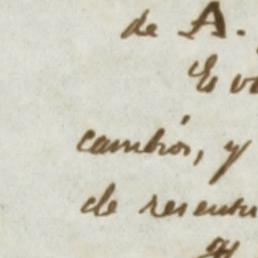 de A.
Es vo
cambios, y
de resentim